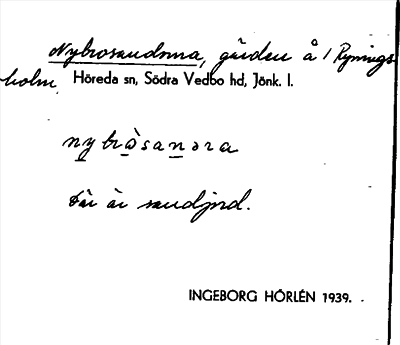 Nybrosandorna, gärden å 1 Rynings-
holm, Höreda sn, Södra Vedbo hd, Jönk. l.
nybròsanəra
där är sandjord.
INGEBORG HÖRLÉN 1939.